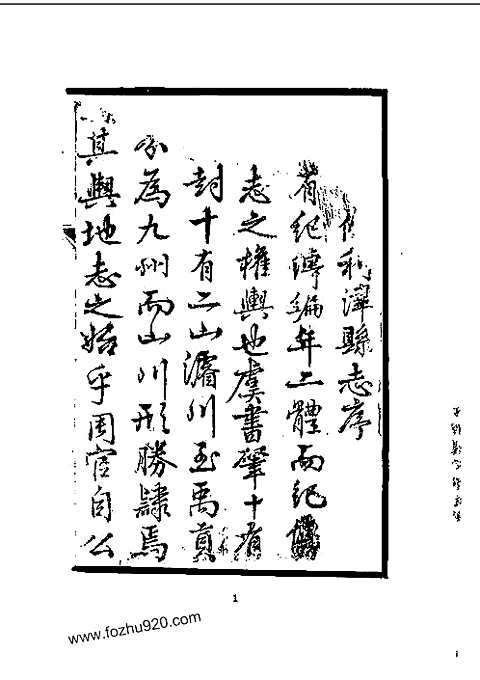 利津縣志序
紀傳編年二體而紀
志之權輿也虞書肇十有
封十有二山濬川至禹貢
分為九州而山川形勝隸焉
其輿地志之始乎周官自公
1
www.fozhu920.com
i